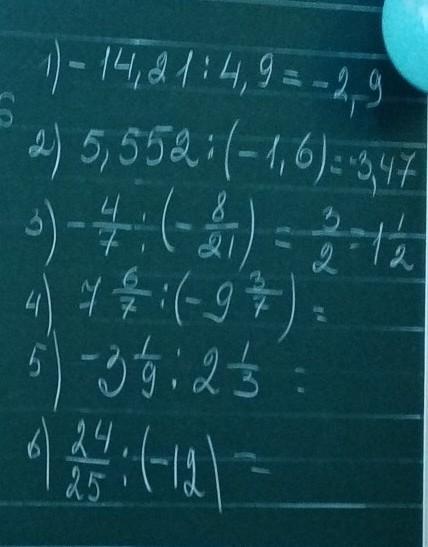 1) - 14,21 : 4,9 = -2,9
2) 5,552 : (-1,6) = -3,47
3) - 4/7 : (- 8/21) = 3/2 = 1 1/2
4) 7 6/7 : (-9 3/7) =
5) -3 1/9 : 2 1/3 =
6) 24/25 : (-12) =